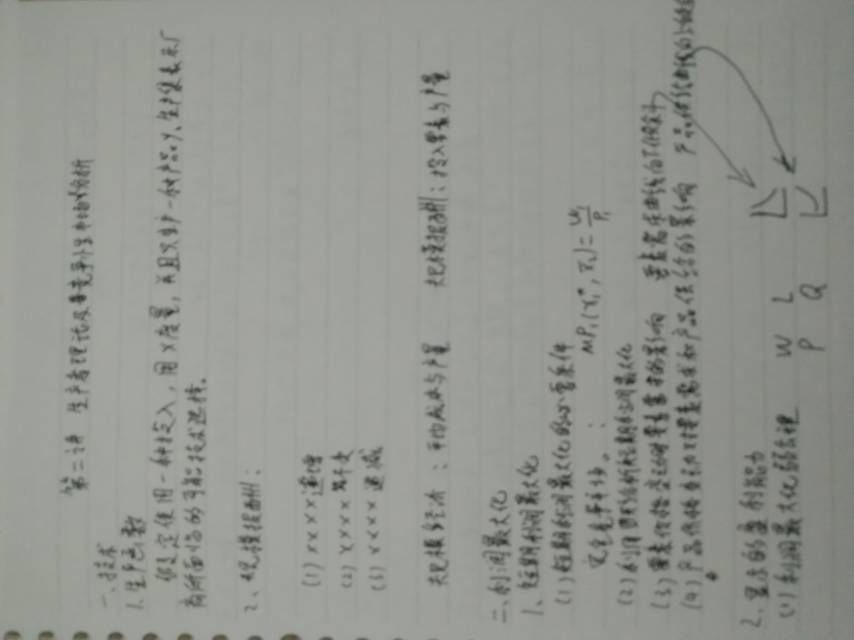 第二讲 生产者理论及非完全竞争市场的分析
一、技术
1. 生产函数
假定使用一种投入，用x度量，并且只生产一种产品y。生产集表示厂
商所面临的可能技术选择。
2、规模报酬：
(1) xxxx递增
(2) xxxx不变
(3) xxxx递减
规模经济：平均成本与产量 规模报酬：投入要素与产量
二、利润最大化
1、短期利润最大化
(1) 短期利润最大化的必要条件
完全竞争市场： MP₁(x₁*, x₂) = w₁/P₁
(2) 利润最大化
(3) 要素价格变动对要素需求的影响 要素需求曲线向下倾斜
(4) 产品价格变动对要素需求和产品供给的影响 产品供给曲线向上倾斜
2. 显示的盈利能力 W L
(1) 利润最大化弱公理 P Q